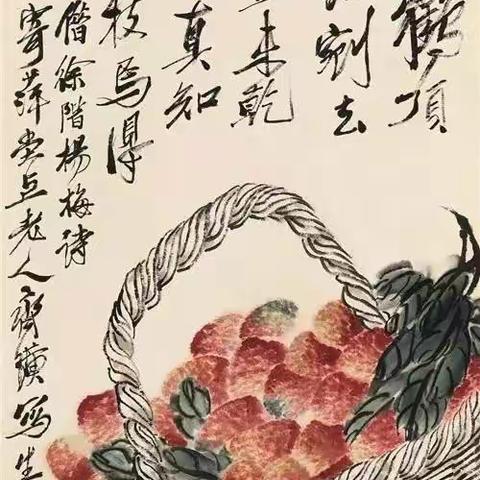 鶴頂
剜去
未乾
真知
枝焉得
借徐階楊梅詩
寄萍堂上老人齊璜寫生